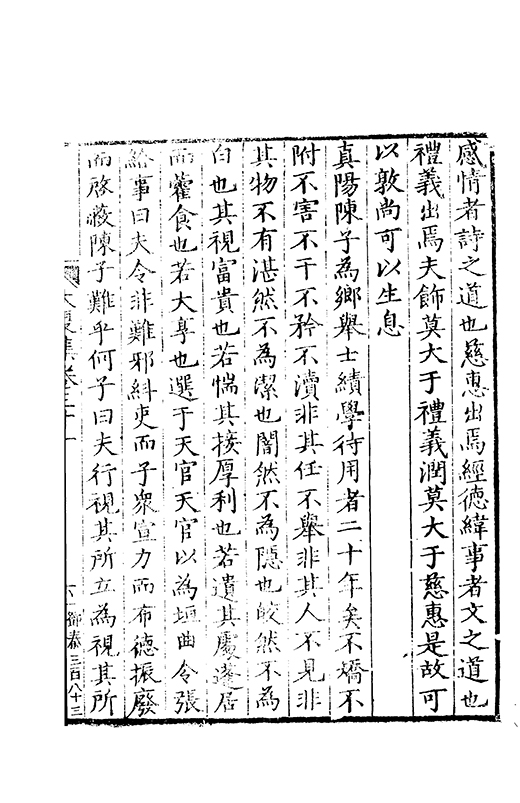 感情者詩之道也慈惠出焉經德緯事者文之道也
禮義出焉夫飾莫大于禮義潤莫大于慈惠是故可
以敦尚可以生息
真陽陳子為鄉舉士績學待用者二十年矣不矯不
附不害不干不矜不瀆非其任不舉非其人不見非
其物不有湛然不為潔也闇然不為隱也皎然不為
白也其視富貴也若惴其接厚利也若遺其處蓬居
而藿食也若大享也選于天官天官以為垣曲令張
給事曰夫令非難邪糾吏而子衆宣力而布德振廢
而啓蔽陳子難乎何子曰夫行視其所立為視其所
大復集卷三十一
六 御泰 三百八十三